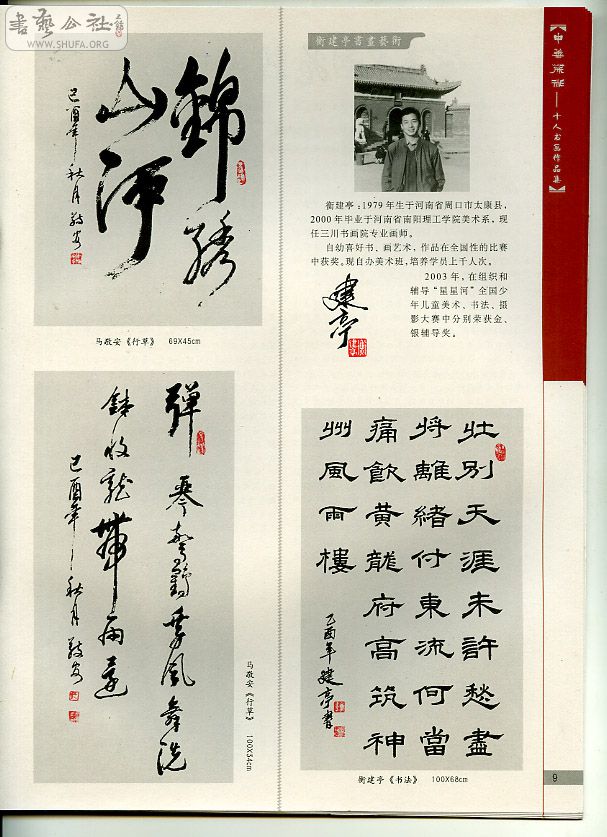 書藝公社
www.SHUFA.ORG
錦繡
山河
己酉年秋月敬安
马敬安《行草》 69X45cm
彈琴驚鶴乘風舞洗
鉢收龍帶雨還
己酉年秋月敬安
马敬安《行草》 100X34cm
衡建亭書畫藝術
衡建亭:1979年生于河南省周口市太康县,
2000年毕业于河南省南阳理工学院美术系,现
任三川书画院专业画师。
自幼喜好书、画艺术,作品在全国性的比赛
中获奖。现自办美术班,培养学员上千人次。
2003年,在组织和
辅导“星星河”全国少
年儿童美术、书法、摄
影大赛中分别荣获金、
银辅导奖。
建亭
壯別天涯未許愁盡
將離緒付東流何當
痛飲黃龍府高筑神
州風雨樓
乙酉年建亭書
衡建亭《书法》 100X68cm
十人书画作品集】
9